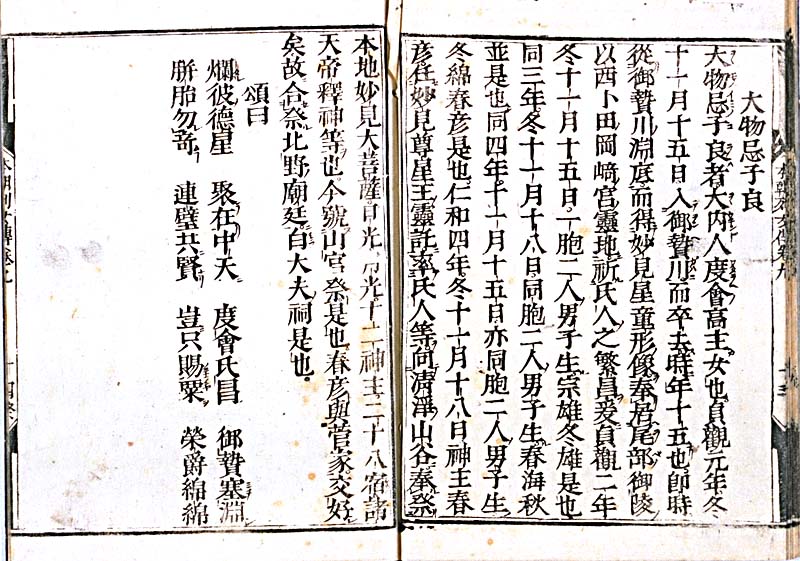 大物忌子良
大物忌子良者大内人度會高主女也貞觀元年冬
十一月十五日入御贄川而卒去時年十五也卽時
從御贄川淵底而得妙見星童形像奉居尾部御陵
以西小田岡崎宮靈地祈氏人之繁昌爰貞觀二年
冬十一月十五日一胞二人男子生宗雄冬雄是也
同三年冬十一月十八日同胞二人男子生春海秋
並是也同四年十一月十五日亦同胞二人男子生
冬綿春彦是也仁和四年冬十一月十八日神主春
彦任妙見尊星王靈託率氏人等向清淨山谷奉祭
本地妙見大菩薩日光月光十二神主二十八宿諸
天帝釋神等也今號山宮祭是也春彦與菅家交好
矣故合祭北野廟廷白大夫祠是也
頌曰
爛彼德星 聚在中天 度會氏昌 御贄塞淵
騈胎勿奇 連璧共賢 豈只賜粟 榮爵綿綿